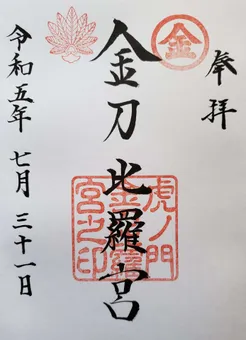 奉拝
金
金刀比羅宮
虎ノ門
金刀比羅
宮之印
令和五年 七月 三十一日